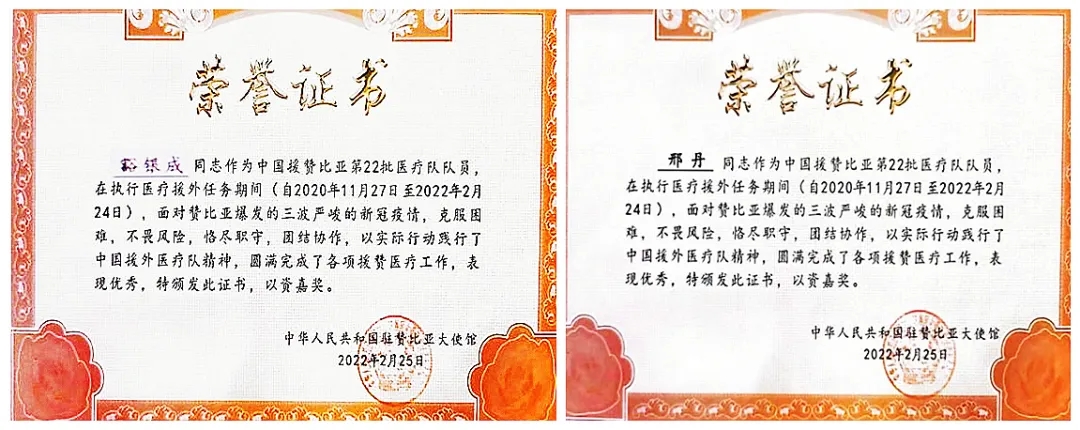 荣誉证书
银成 同志作为中国援赞比亚第22批医疗队队员，
在执行医疗援外任务期间（自2020年11月27日至2022年2月
24日），面对赞比亚爆发的三波严峻的新冠疫情，克服困
难，不畏风险，恪尽职守，团结协作，以实际行动践行了
中国援外医疗队精神，圆满完成了各项援赞医疗工作，表
现优秀，特颁发此证书，以资嘉奖。
中华人民共和国驻赞比亚大使馆
2022年2月25日
荣誉证书
邢丹 同志作为中国援赞比亚第22批医疗队队员，
在执行医疗援外任务期间（自2020年11月27日至2022年2月
24日），面对赞比亚爆发的三波严峻的新冠疫情，克服困
难，不畏风险，恪尽职守，团结协作，以实际行动践行了
中国援外医疗队精神，圆满完成了各项援赞医疗工作，表
现优秀，特颁发此证书，以资嘉奖。
中华人民共和国驻赞比亚大使馆
2022年2月25日